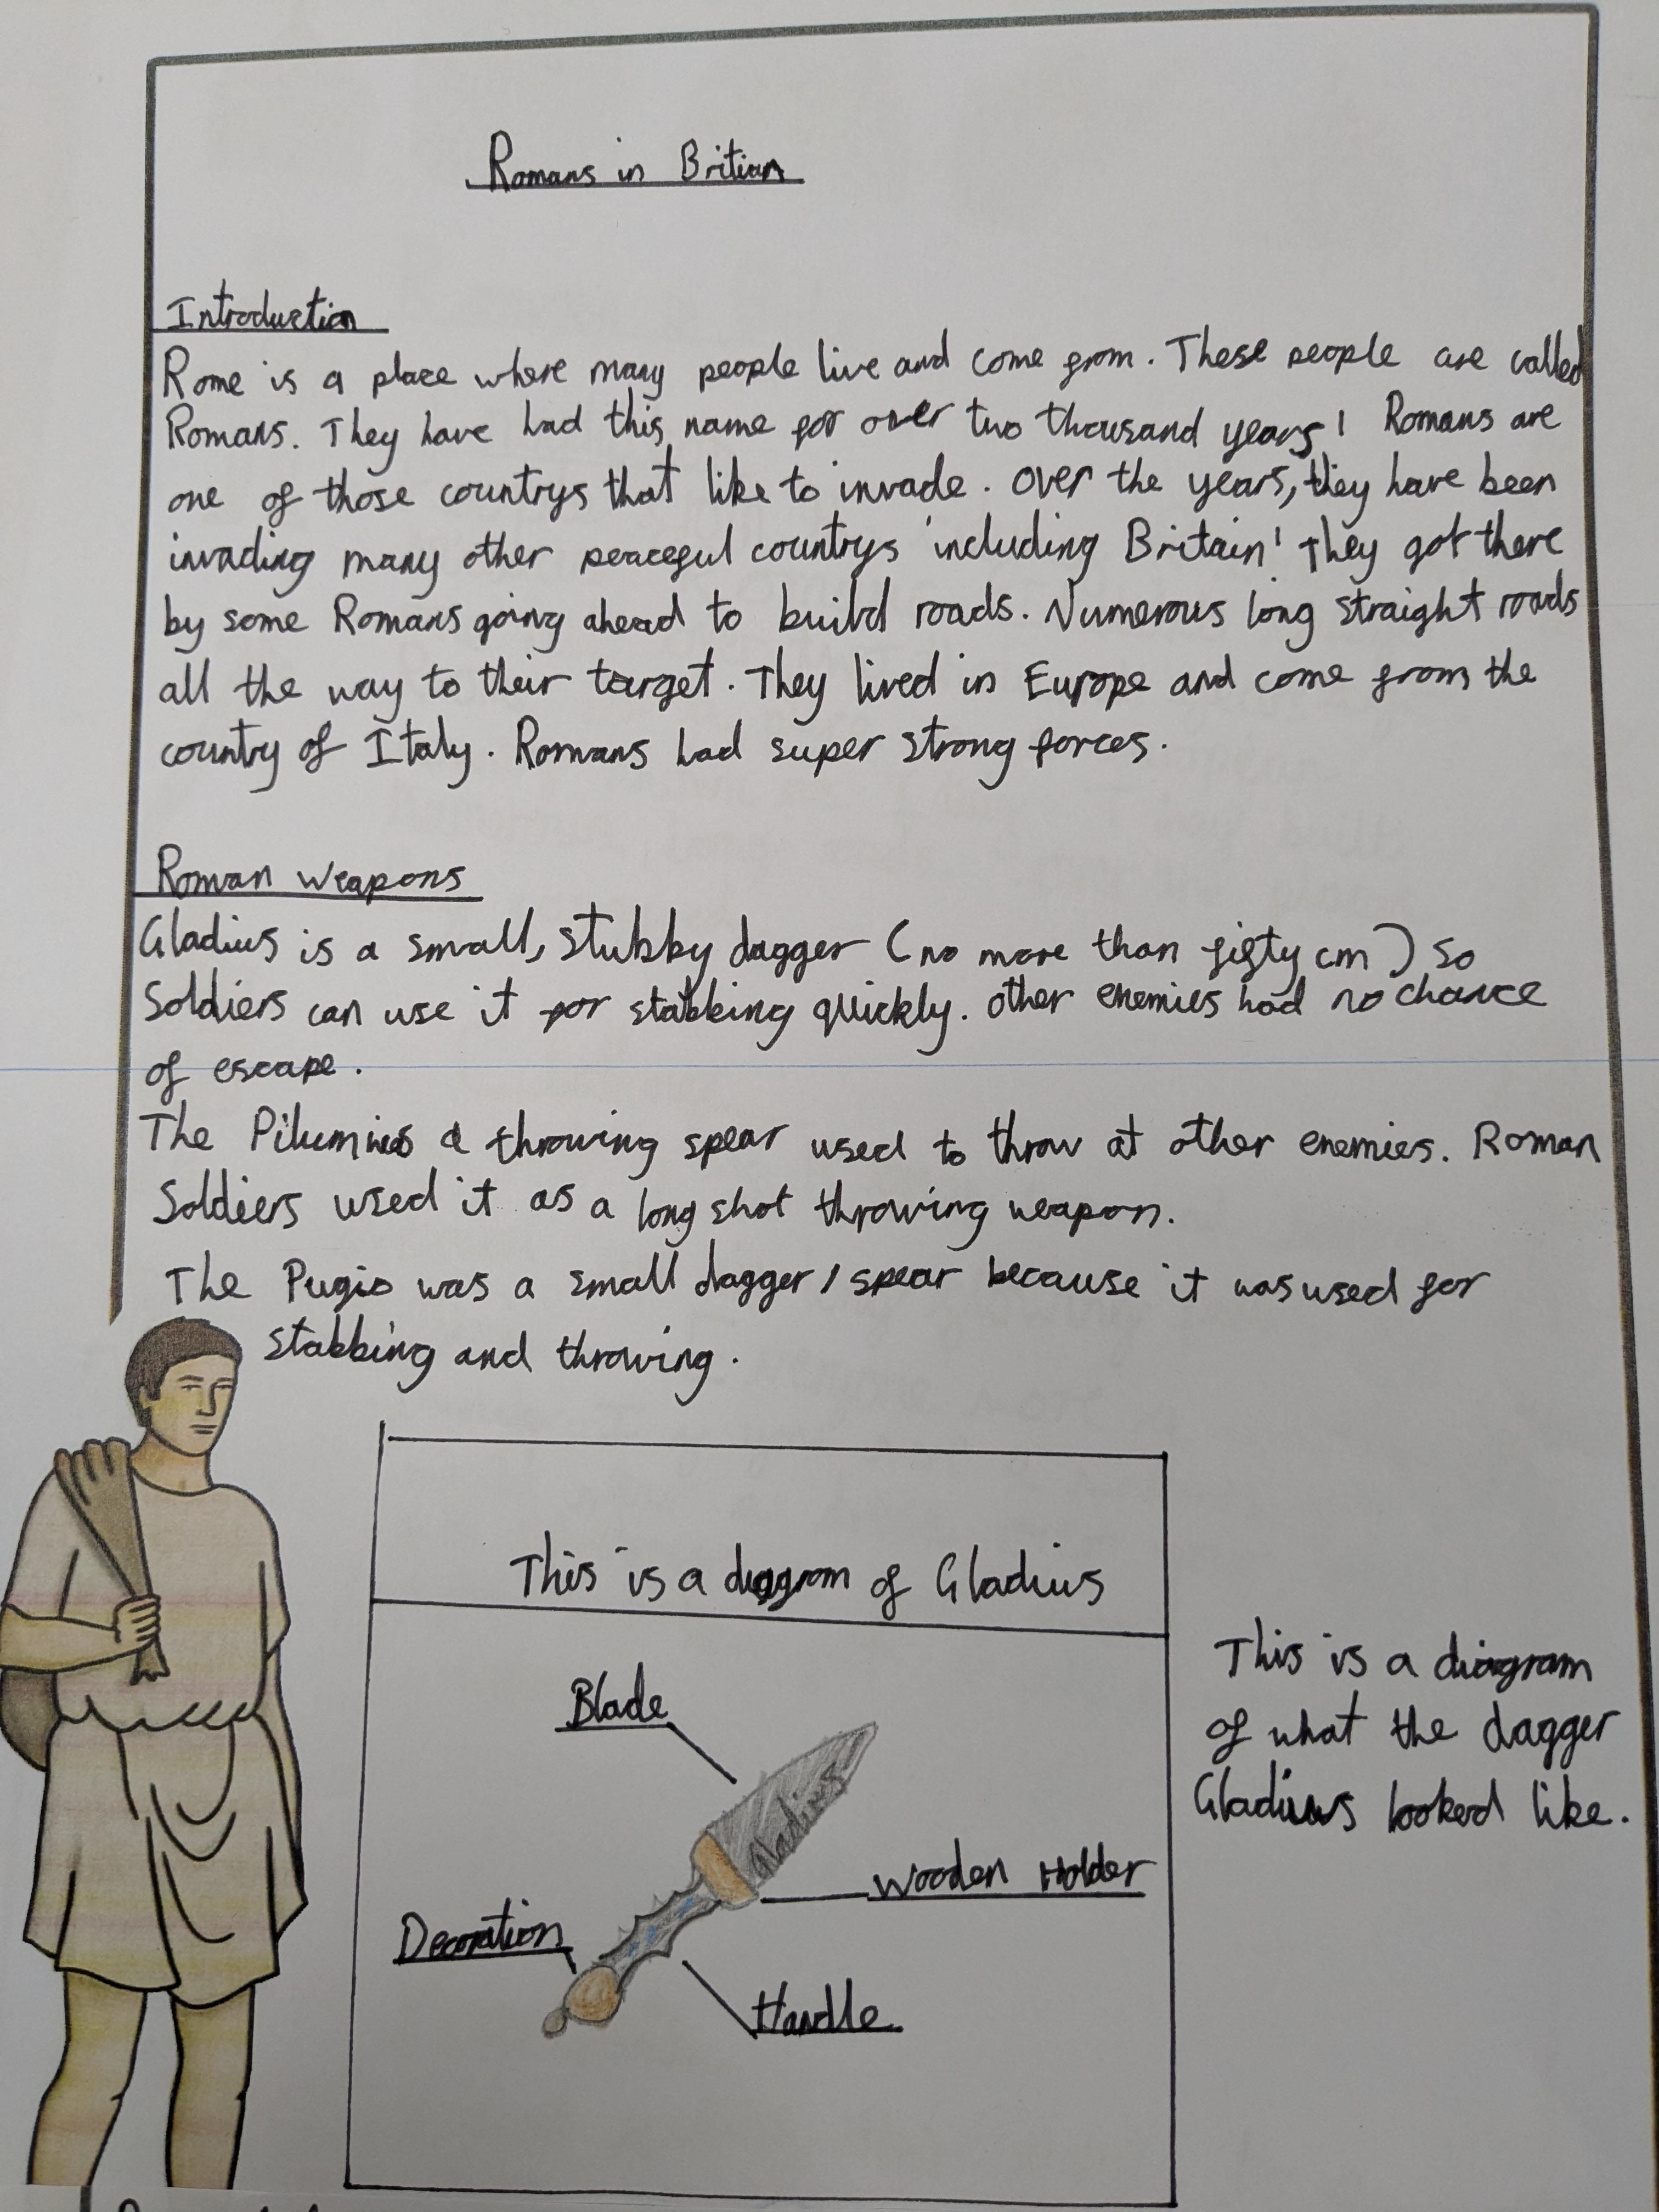 Romans in Britian
Introduction
Rome is a place where many people live and come from. These people are called
Romans. They have had this name for over two thousand years! Romans are
one of those countrys that like to invade. Over the years, they have been
invading many other peaceful countrys including Britain! They got there
by some Romans going ahead to build roads. Numerous long straight roads
all the way to their target. They lived in Europe and come from the
country of Italy. Romans had super strong forces.
Roman Weapons
Gladius is a small, stubby dagger (no more than fifty cm) so
Soldiers can use it for stabbing quickly. Other enemies had no chance
of escape.
The Pilum a throwing spear used to throw at other enemies. Roman
Soldiers used it as a long shot throwing weapon.
The Pugio was a small dagger / spear because it was used for
stabbing and throwing.
This is a diagram of Gladius
Blade
Gladius
Wooden Holder
Decoration
Handle
This is a diagram
of what the dagger
Gladius looked like.